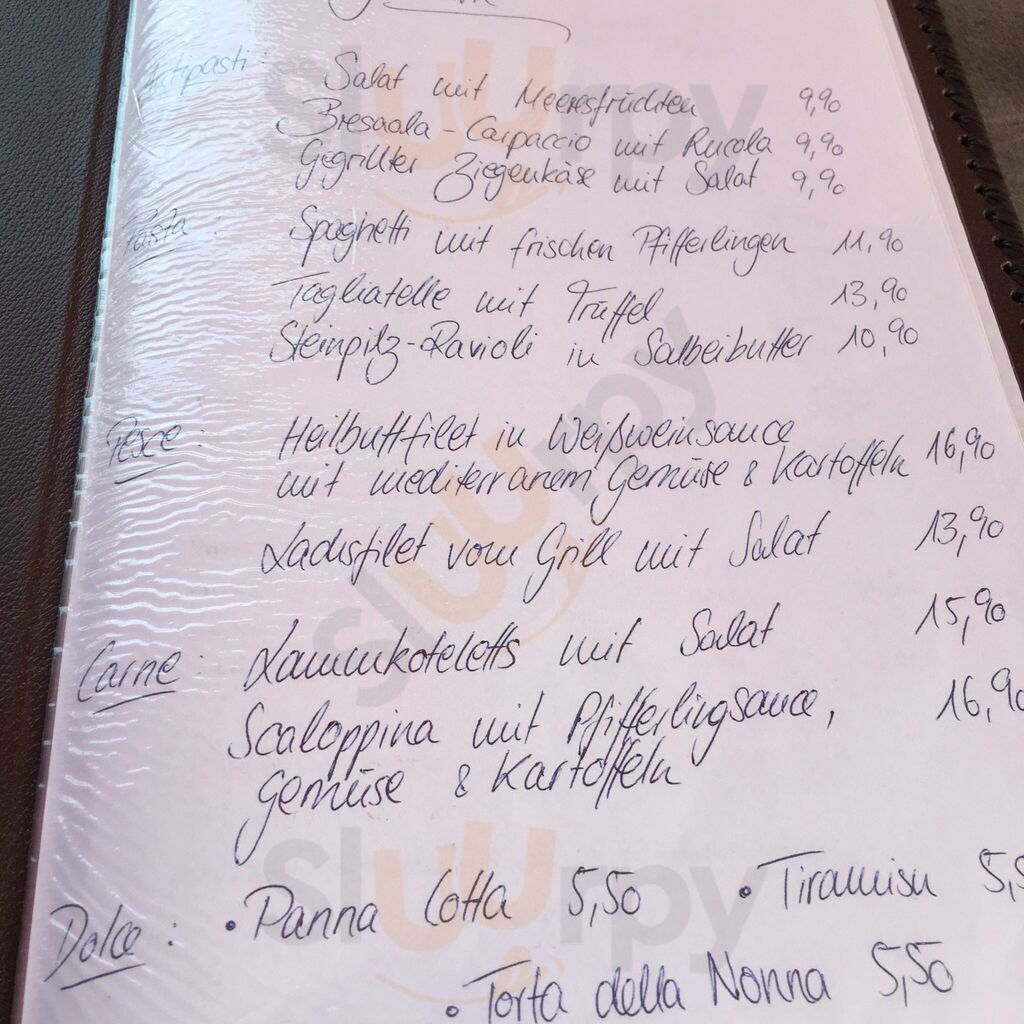 Antipasti: Salat mit Meeresfrüchten 9,90
Bresaola-Carpaccio mit Rucola 9,90
Gegrillter Ziegenkäse mit Salat 9,90
Pasta: Spaghetti mit frischen Pfifferlingen 11,90
Tagliatelle mit Trüffel 13,90
Steinpilz-Ravioli in Salbeibutter 10,90
Pesce: Heilbuttfilet in Weißweinsauce
mit mediterranem Gemüse & Kartoffeln 16,90
Lachsfilet vom Grill mit Salat 13,90
Carne: Lammkoteletts mit Salat 15,90
Scaloppina mit Pfifferlingsauce, 16,90
Gemüse & Kartoffeln
Dolce: • Panna Cotta 5,50 • Tiramisu 5,5
• Torta della Nonna 5,50
sluurpy
sluurpy
sluurpy